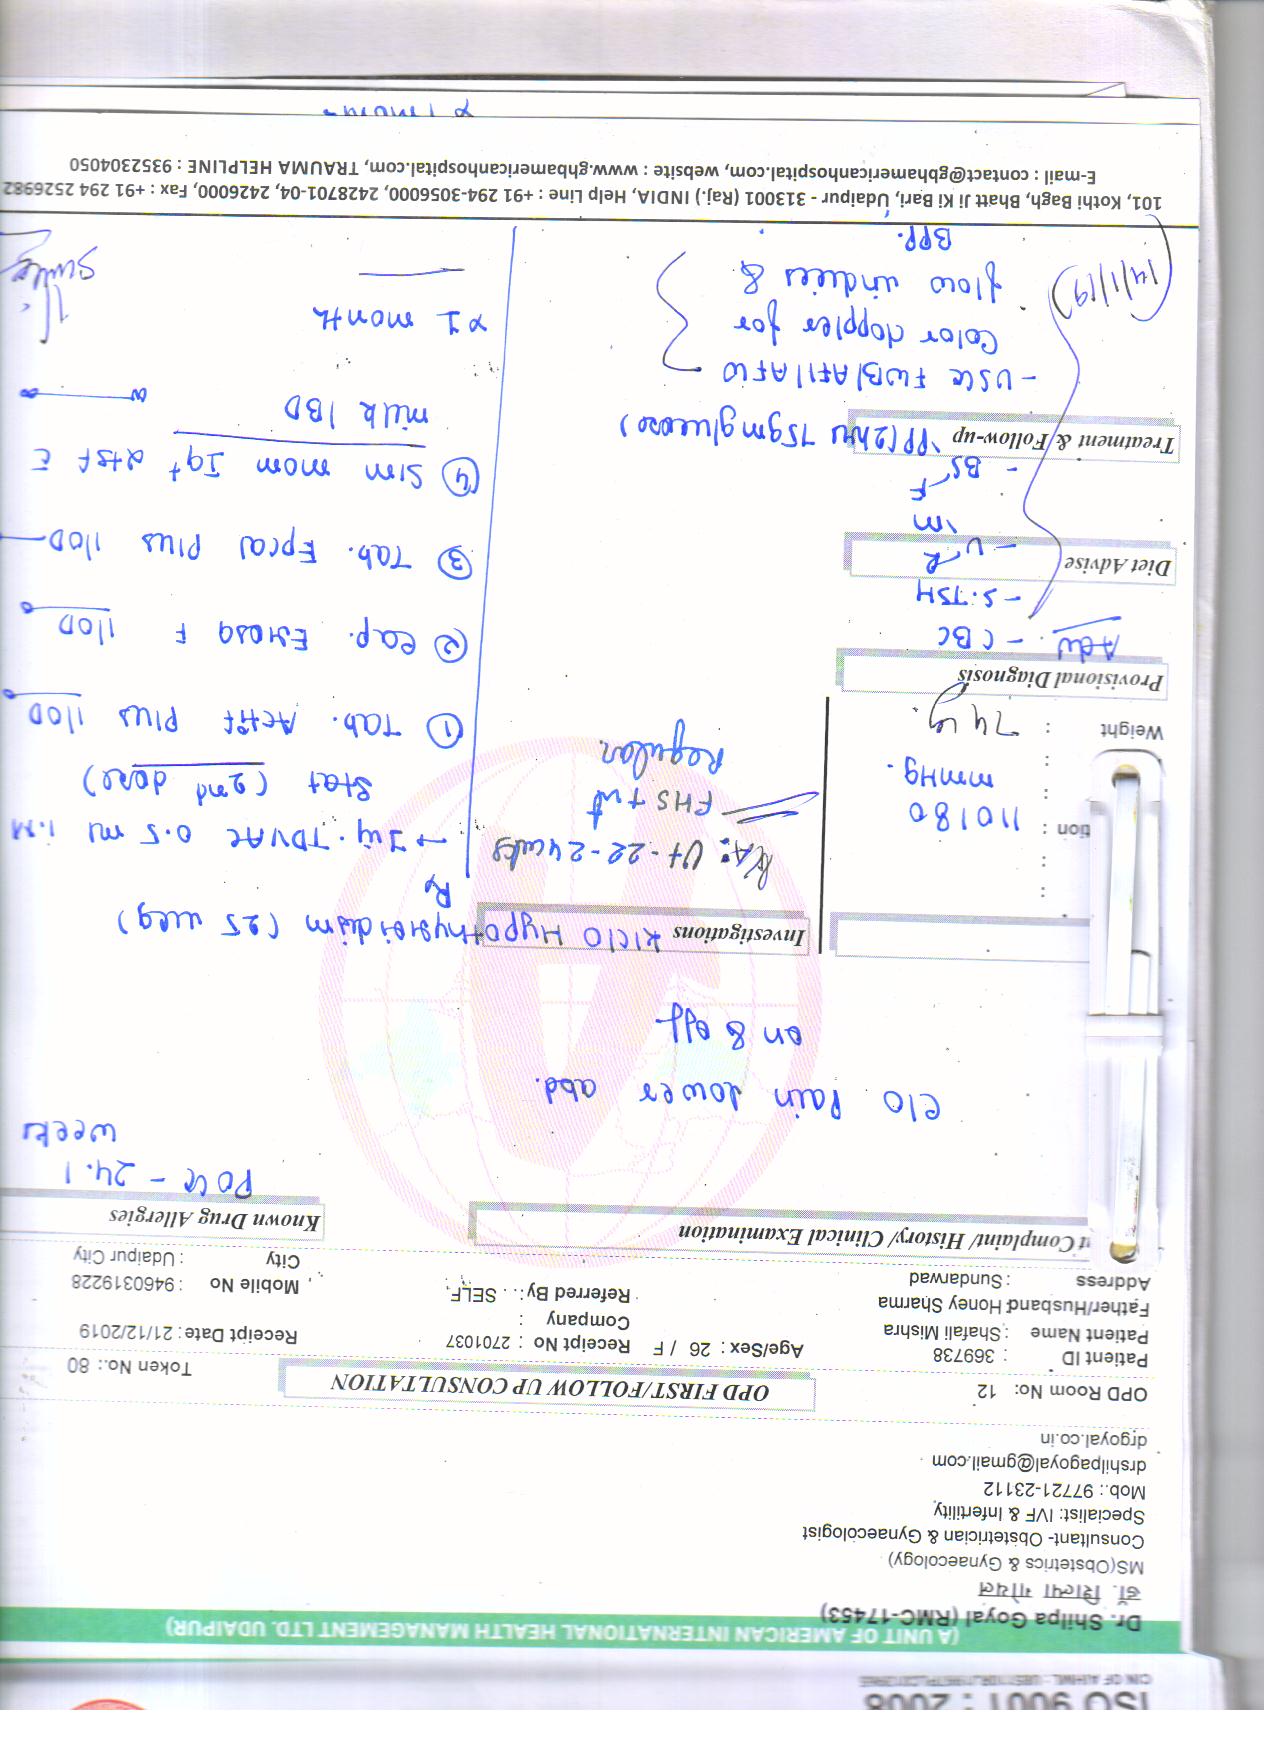 ISO 9001 : 2008
(A UNIT OF AMERICAN INTERNATIONAL HEALTH MANAGEMENT LTD. UDAIPUR)
Dr. Shilpa Goyal (RMC-17453)
डॉ. शिल्पा गोयल
MS(Obstetrics & Gynaecology)
Consultant- Obstetrician & Gynaecologist
Specialist: IVF & Infertility
Mob.: 97721-23112
drshilpagoyal@gmail.com
drgoyal.co.in
OPD Room No: 12
OPD FIRST/FOLLOW UP CONSULTATION
Token No.: 80
Patient ID : 369738
Patient Name : Shafali Mishra
Father/Husband: Honey Sharma
Address : Sundarwad
Age/Sex : 26 / F
Receipt No : 2701037
Company :
Referred By : SELF,
Receipt Date : 21/12/2019
Mobile No : 9460319228
City : Udaipur City
t Complaint/ History/ Clinical Examination
Known Drug Allergies
POG - 24.1
weeks
c/o Pain lower abd.
on & off
Investigations
K/C/O Hypothyroidism (25 mcg)
tion : 110/80
mmHg.
Weight : 74 kg
P/A: Ut - 22-24 wks
FHS +nt
Regular.
Provisional Diagnosis
Adv. - CBC
- S.TSH
Diet Advise
- U R
M
- BS F
PP (2hr 75gm glucose)
Treatment & Follow-up
- USG FWB/AFI/AFW
Color doppler for
flow indices &
BPP.
(14/1/19)
Rx
→ Inj. TDVAC 0.5 ml I.M
Stat (2nd dose)
① Tab. Actif Plus 1 OD
② Cap. F 1 OD
③ Tab. Epcal Plus 1 OD
④ Sim mom 2tsf c̄
milk 1 BD
x 1 month
101, Kothi Bagh, Bhatt Ji Ki Bari, Udaipur - 313001 (Raj.) INDIA, Help Line : +91 294-3056000, 2428701-04, 2426000, Fax : +91 294 2526982
E-mail : contact@gbhamericanhospital.com, website : www.gbhamericanhospital.com, TRAUMA HELPLINE : 9352304050